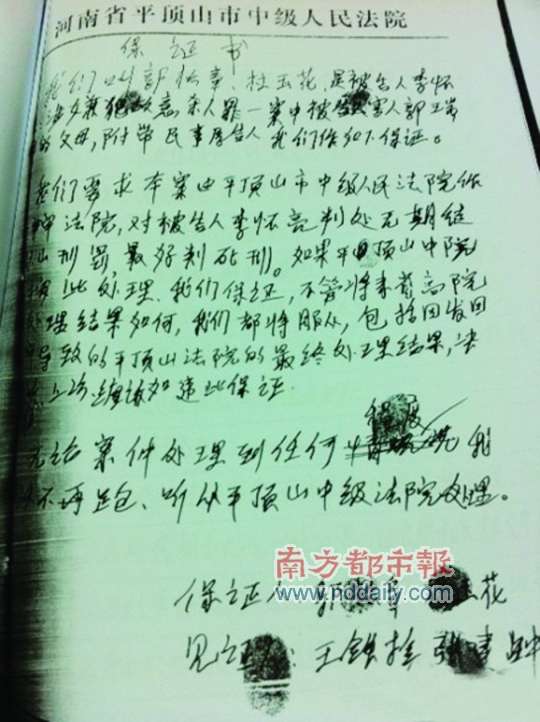 河南省平顶山市中级人民法院
保证书
我们叫郭松章、杜玉花,是被告人李怀
亮涉嫌犯故意杀人罪一案中被害人郭
的父母,附带民事原告人我们作如下保证。
我们要求本案由平顶山市中级人民法院作
法院,对被告人李怀亮判处无期
刑罚最好判死刑。如果平顶山中院
此处理、我们保证,不管将来省高院
处理结果如何,我们都将服从,包括因发回
导致的平顶山法院的最终处理结果,决
不上访 如违此保证.
程度
无论案件处理到任何 我
不再追究、听从平顶山中级法院处理。
南方都市報
www.nddaily.com
保证人 郭 章 花
见证 : 王铁拴 张建